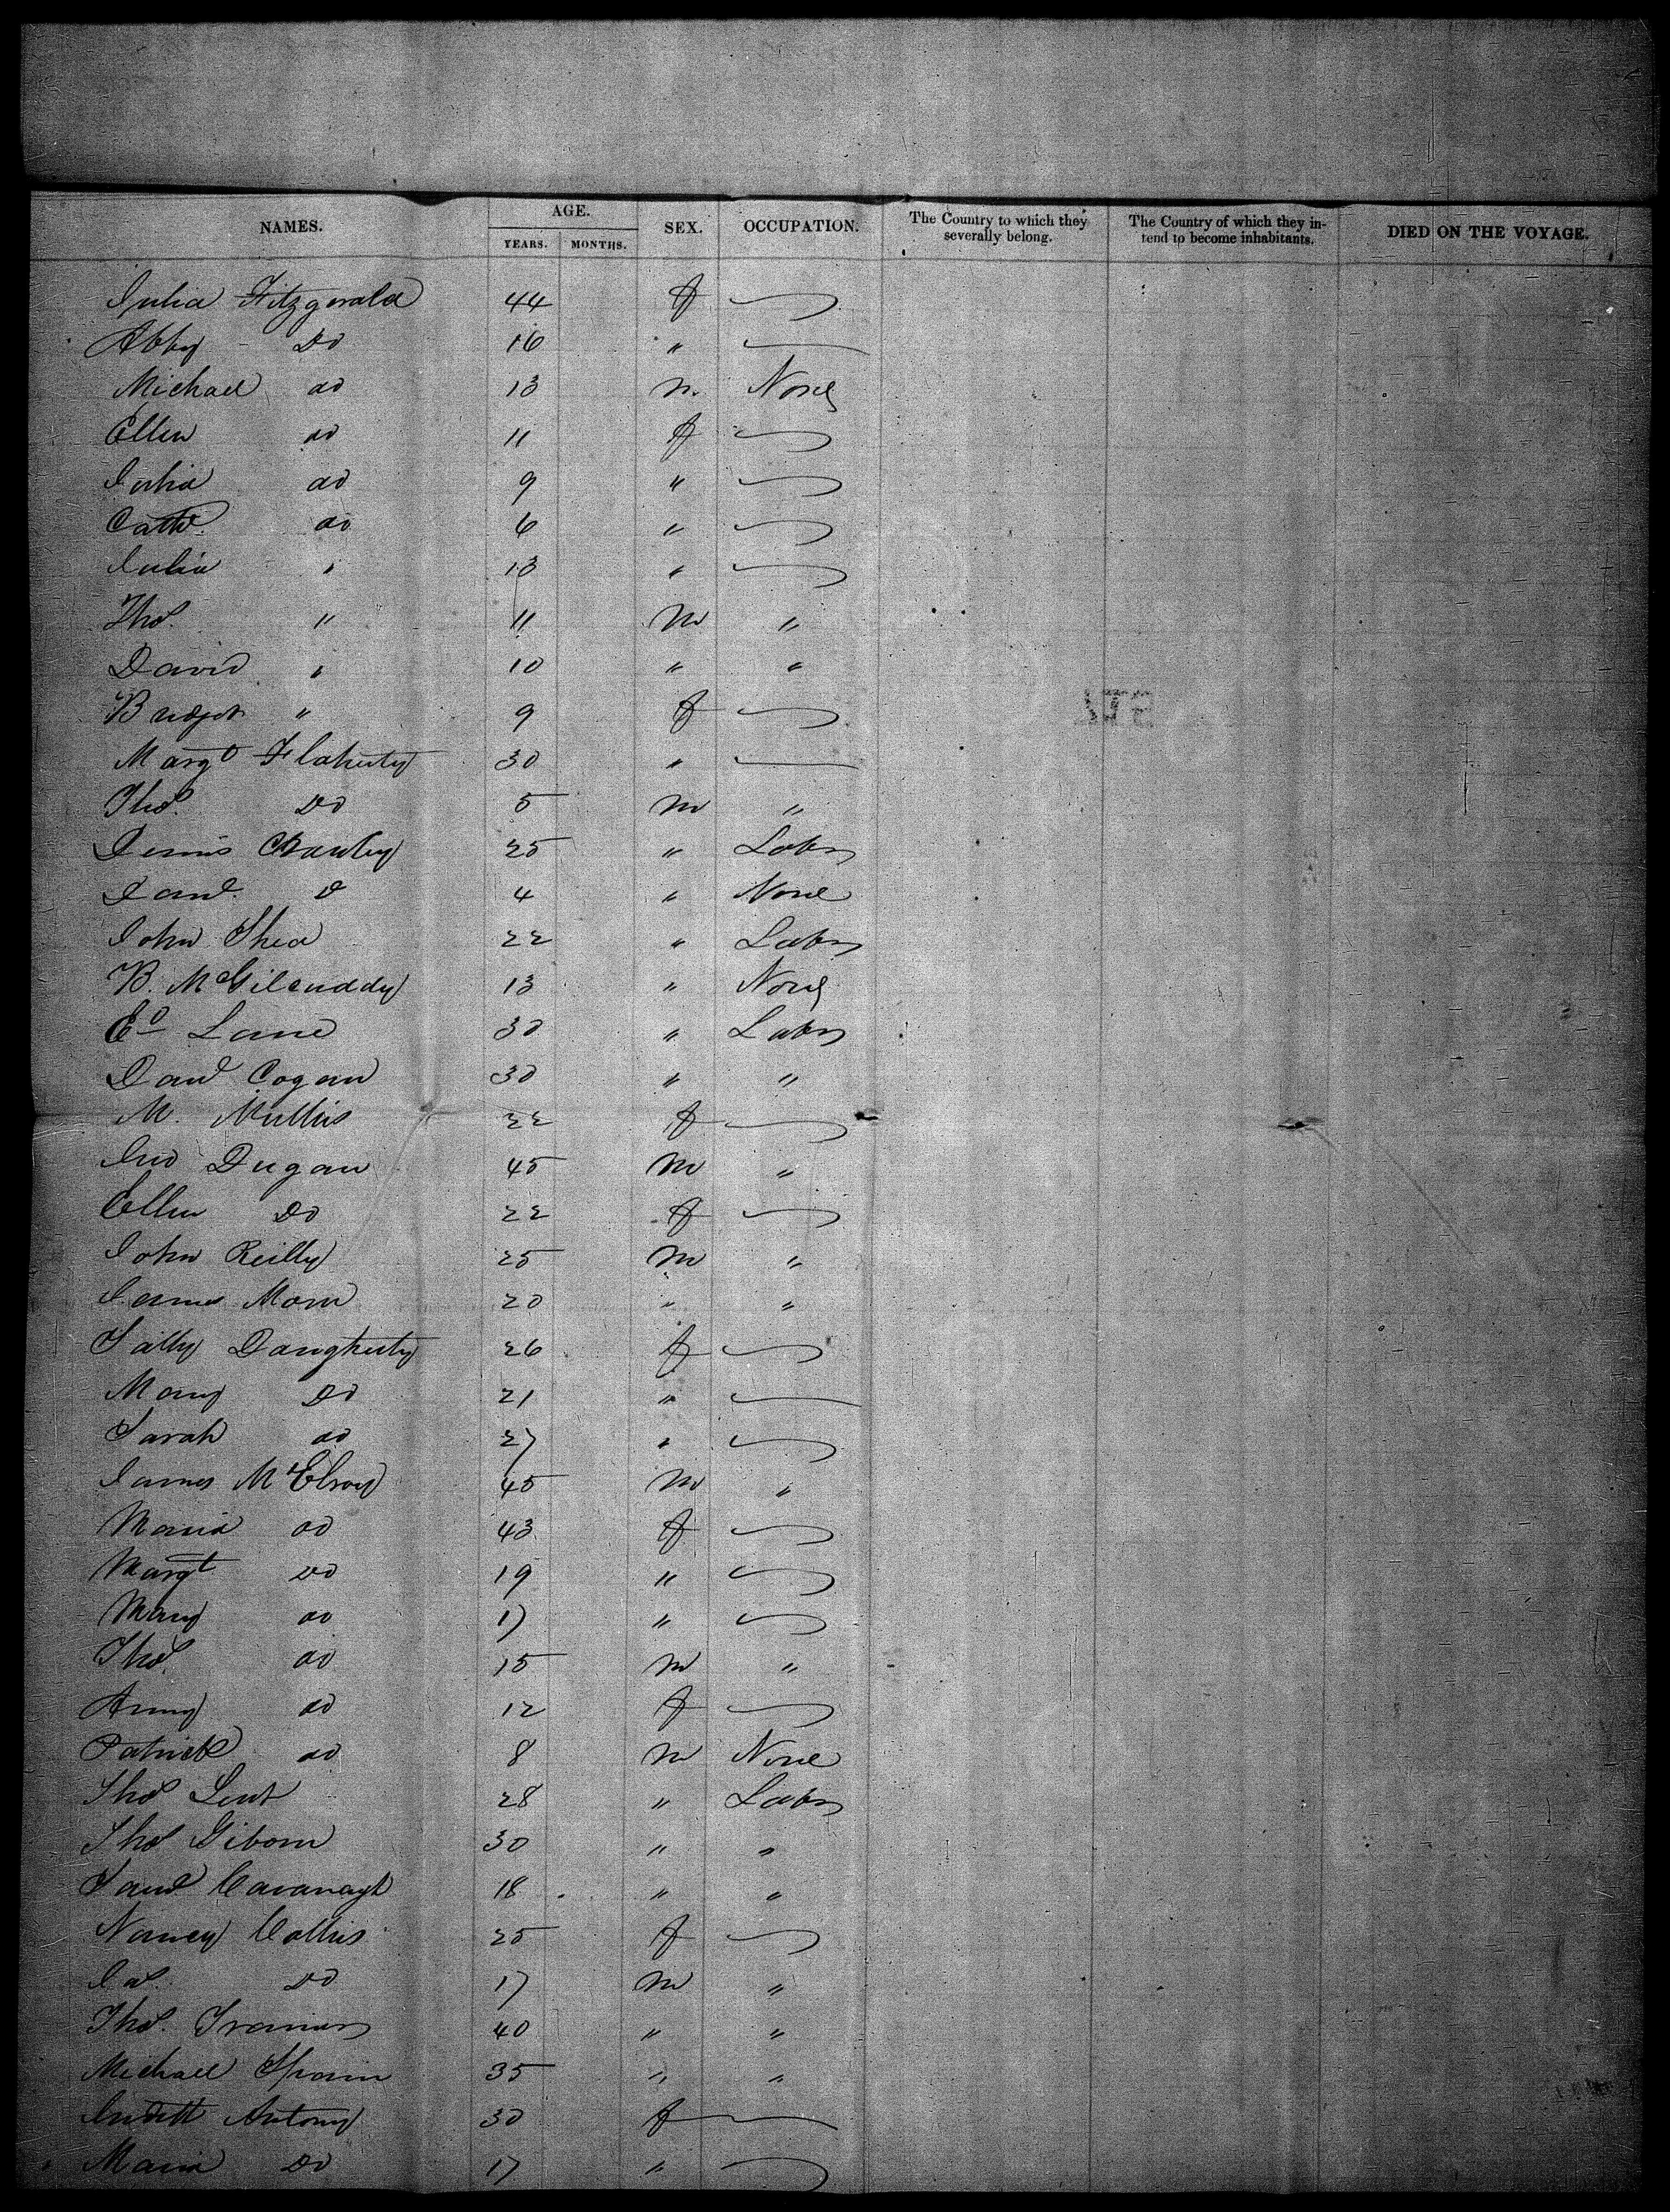 NAMES. AGE. SEX. OCCUPATION. The Country to which they severally belong. The Country of which they intend to become inhabitants. DIED ON THE VOYAGE.
YEARS. MONTHS.
Julia Fitzgerald 44 f
Abby Do 16 "
Michael do 13 m None
Ellen do 11 f
Julia do 9 "
Cath do 6 "
Julia " 13 "
Thos. " 11 M "
David " 10 " "
Bridget " 9 f
Margt Flaherty 30 "
Thos. Do 5 M "
Dennis Crowley 25 " Labr
Danl. D 4 " None
John Shea 22 " Labr
B. McGilcuddy 13 " None
Ed Lane 30 " Labr
Danl Cogan 30 " "
M. Mullins 22 f
Jno Dugan 45 M "
Ellen Do 22 f
John Reilly 25 M "
James Moran 20 " "
Sally Daugherty 26 f
Mary Do 21 "
Sarah do 27 "
James McElroy 45 M "
Maria do 43 f
Margt Do 19 "
Mary do 17 "
Thos. do 15 M "
Anny do 12 f
Patrick do 8 M None
Thos Lent 28 " Labr
Thos 30 " "
Cavanagh 18 " "
Nancy Collins 25 f
Jas. Do 17 M "
Thos. 40 " "
Michael 35 " "
Antony 30 f
Maria Do 17 "